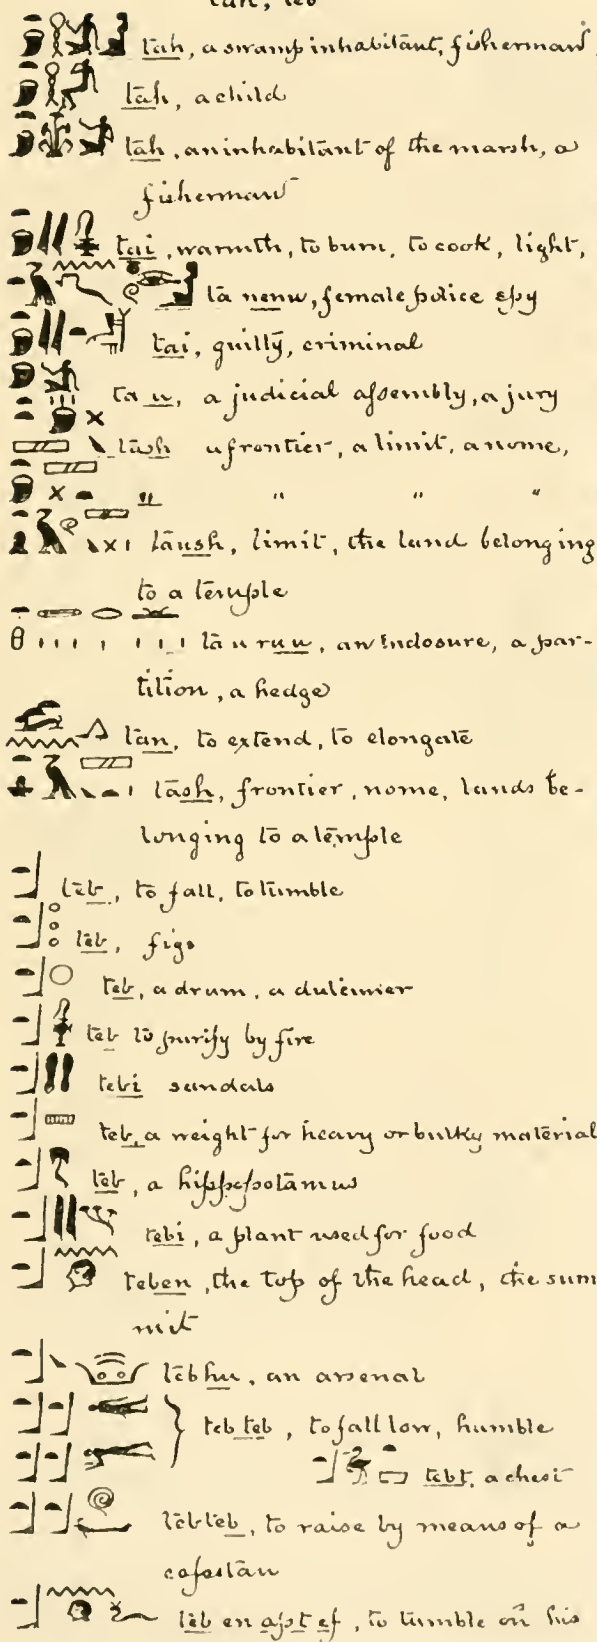 tah, teb
tah, a swamp inhabitant, fisherman
tah, a child
tah, an inhabitant of the marsh, a
fisherman
tai, warmth, to burn, to cook, light,
ta nenu, female police spy
tai, guilty, criminal
ta u, a judicial assembly, a jury
tash a frontier, a limit, a nome,
" " " "
taush, limit, the land belonging
to a temple
ta u ruu, an inclosure, a par-
tition, a hedge
tan, to extend, to elongate
tash, frontier, nome, lands be-
longing to a temple
teb, to fall, to tumble
teb, figs
teb, a drum, a dulcimer
teb to purify by fire
tebi sandals
teb, a weight for heavy or bulky material
teb, a hippopotamus
tebi, a plant used for food
teben, the top of the head, the sum
mit
tebhu, an arsenal
teb teb, to fall low, humble
tebt, a chest
tebteb, to raise by means of a
capstan
teb en apt ef, to tumble on his